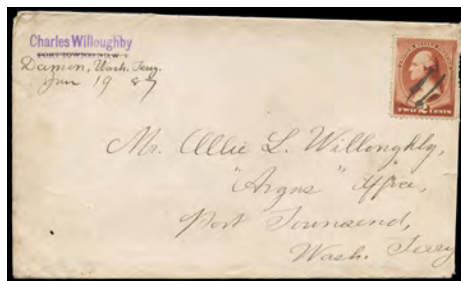 Charles Willoughby
PORT TOWNSEND, W. T.
Damon, Wash. Terry.
Jan 19 87
Mr. Allie L. Willoughby,
"Argus" Office,
Port Townsend,
Wash. Terry
TWO 2 CENTS